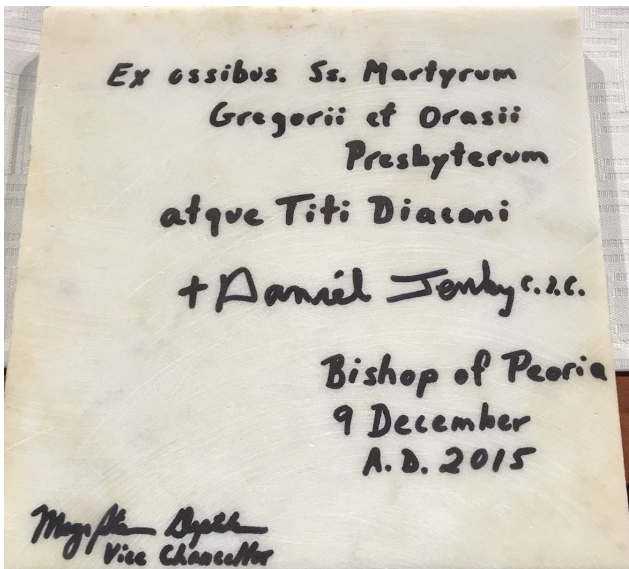 Ex ossibus Ss. Martyrum
Gregorii et Orasii
Presbyterum
atque Titi Diaconi
+ Daniel Jenky c.s.c.
Bishop of Peoria
9 December
A.D. 2015
Vice Chancellor